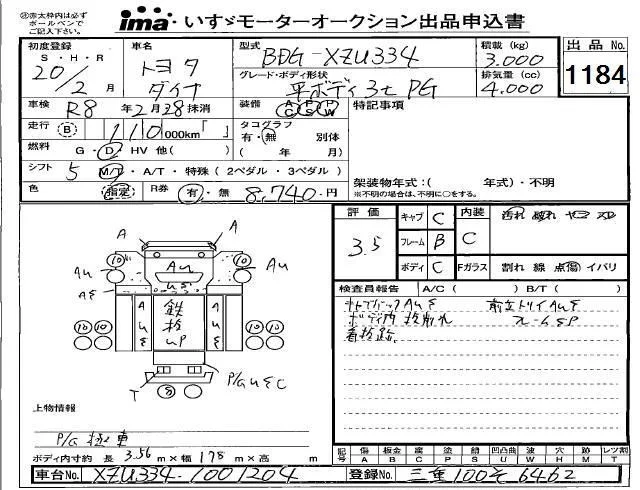 ㊟赤太枠内は必ずボールペンでご記入下さい。
ima・いすゞモーターオークション出品申込書
初度登録 S・H・R 20年2月
車名 トヨタ ダイナ
型式 BDG-XZU334
グレード・ボディ形状 平ボディ3t PG
積載 (kg) 3.000
排気量 (cc) 4.000
出品No 1184
車検 R8年2月28 抹消
装備 AC PS PW
特記事項
走行 B 110,000km「 」
タコグラフ 有・無 別体 ( 年 月)
燃料 G・D・HV 他( )
シフト 5 M/T・A/T・特殊(2ペダル・3ペダル)
架装物年式:( 年式)・不明
※不明の場合は、不明に○をする。
色 指定 R券 有・無 8,740-円
評価 3.5
キャブ C
フレーム B
ボディ C
内装 C
汚れ 破れ ヤニ スレ
Fガラス 割れ 線 点傷 イバリ
検査員報告 A/C( ) B/T( )
ボディ内 板削れ
看板跡
A A
10 10
AU AU
AU
AE
鉄板 UP
10 10 10 10
T 8 P/G AUEC
上物情報
P/G 極東
ボディ内寸約 長 3.56 m×幅 178 m×高 m
記号 傷 A 板金 B 腐 C 塗 P 錆 S 凹凸曲 U 波 W 穴 H 跡 M レツ割 T
車台No. XZU334-1001204
登録No. 三重100そ6462